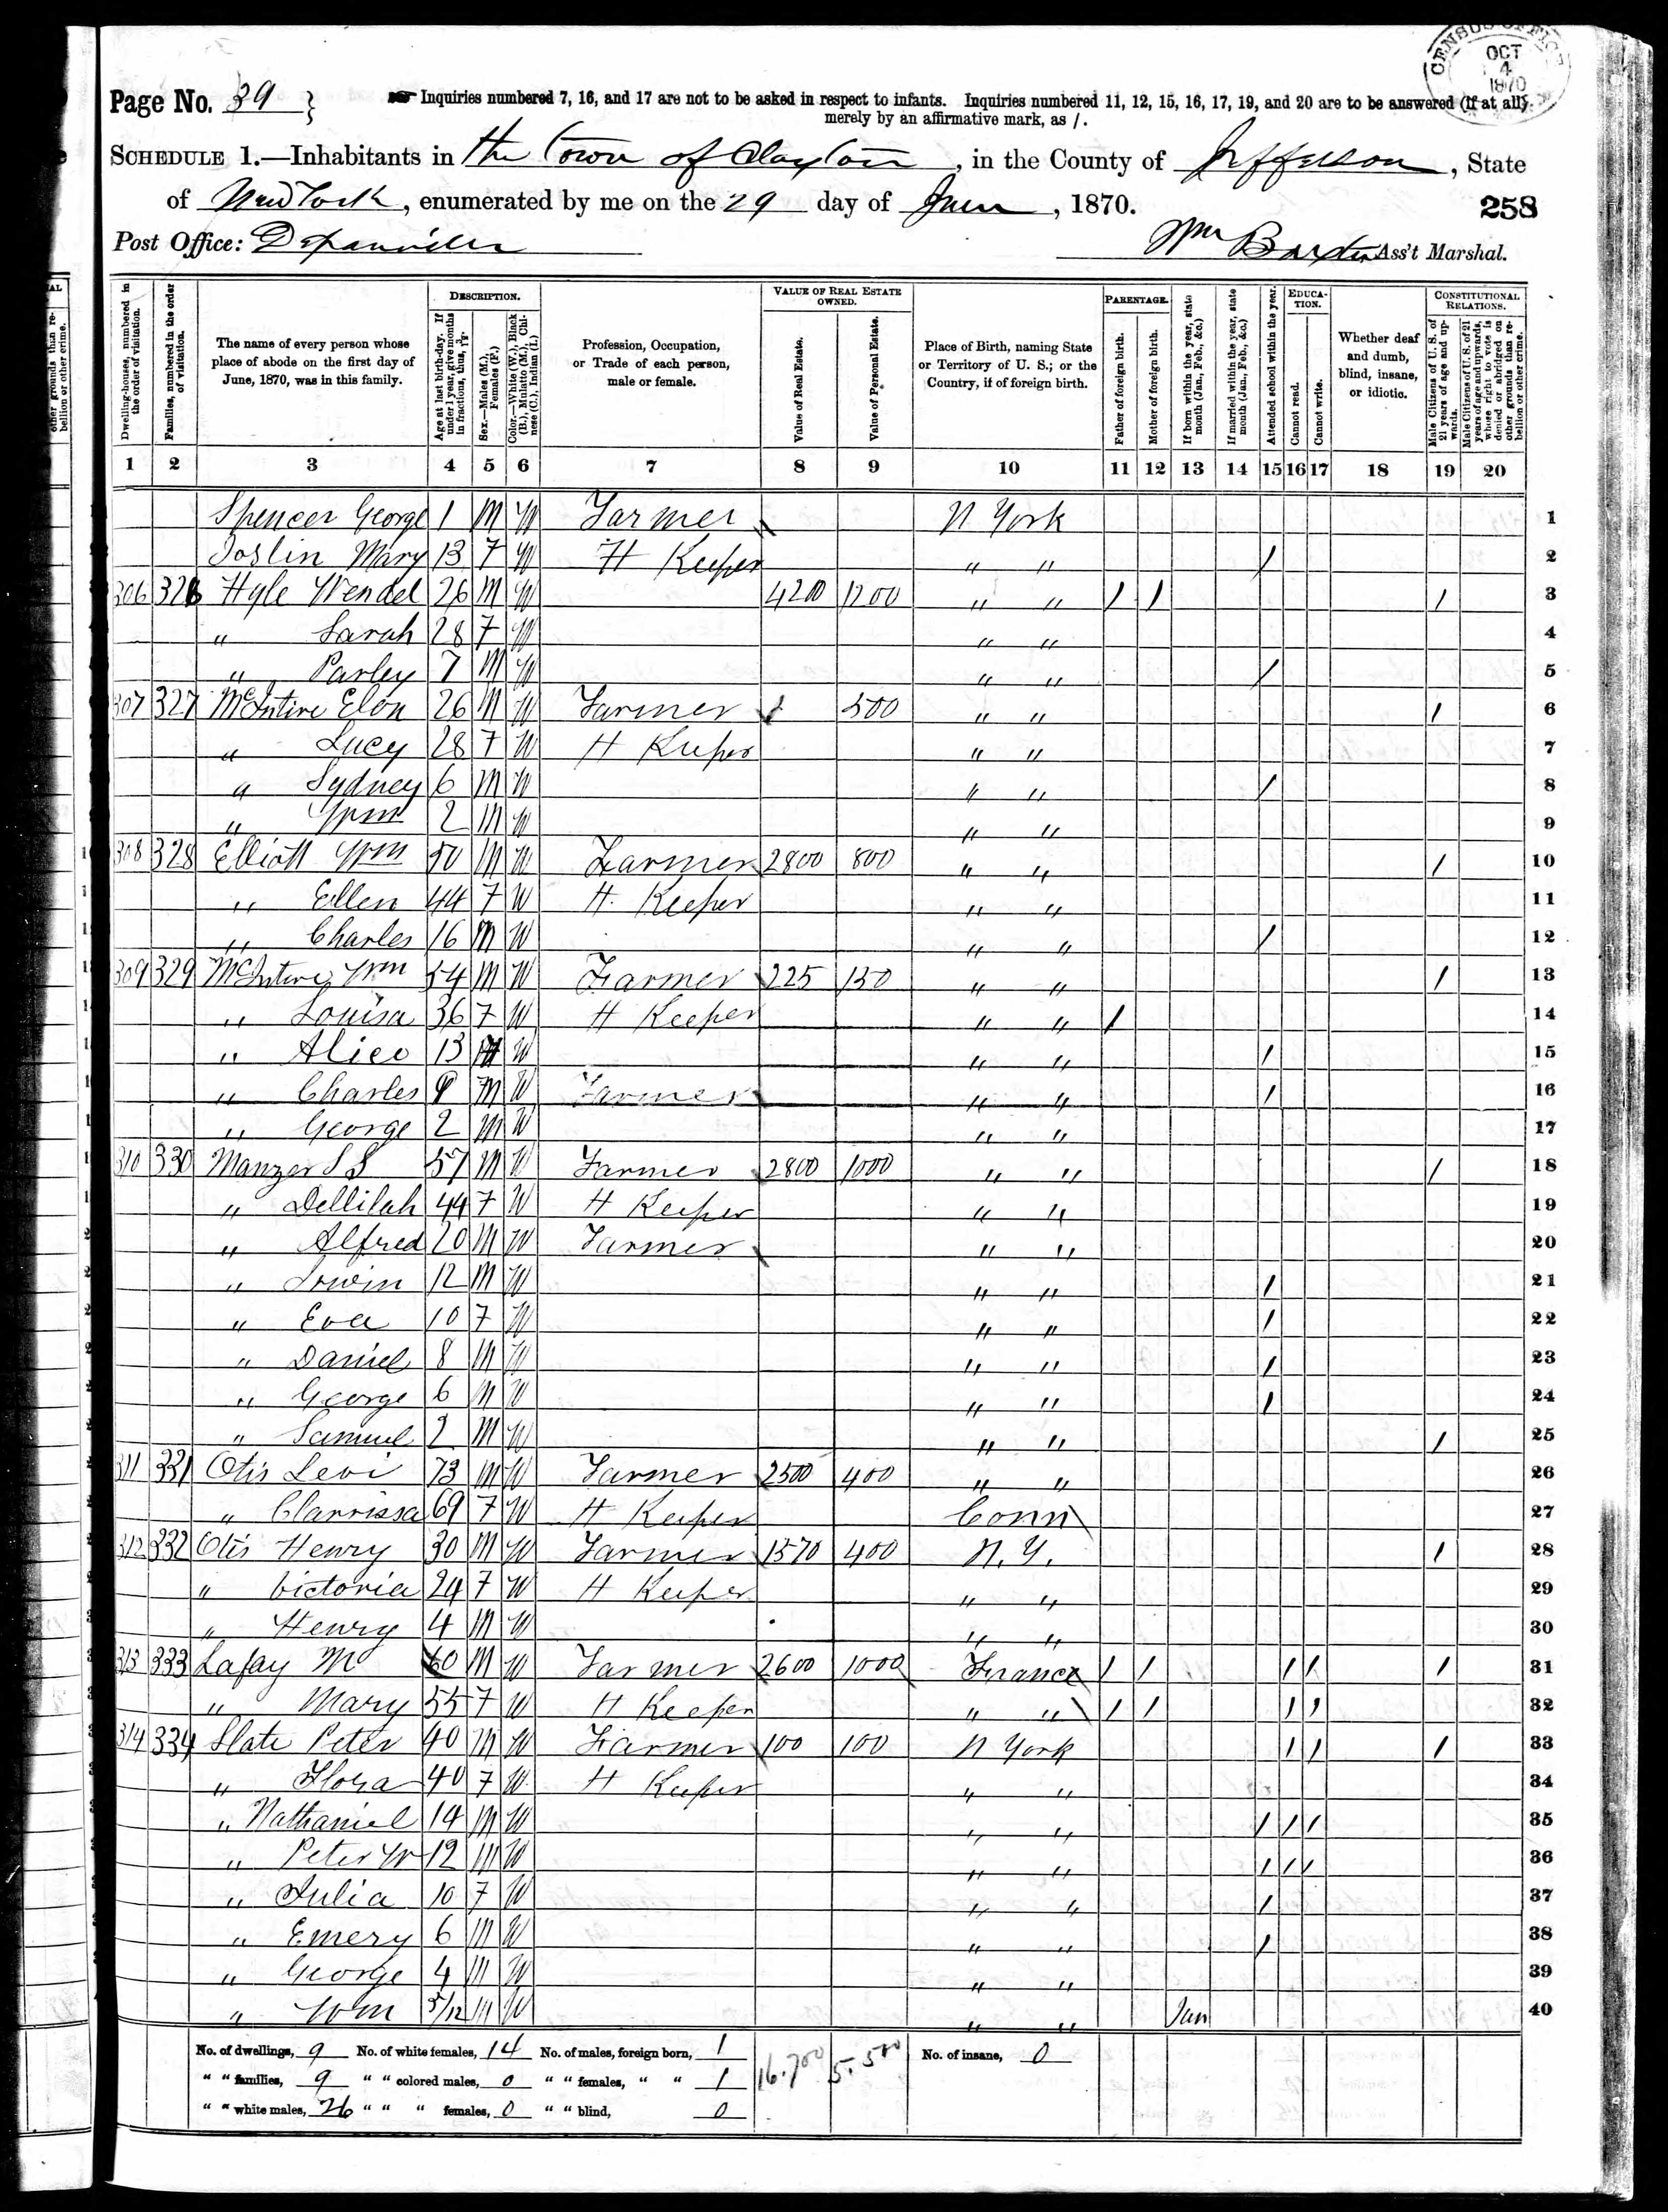 CENSUS OFFICE OCT 4 1870
Page No. 39 } Inquiries numbered 7, 16, and 17 are not to be asked in respect to infants. Inquiries numbered 11, 12, 15, 16, 17, 19, and 20 are to be answered (if at all)
merely by an affirmative mark, as /.
SCHEDULE 1.—Inhabitants in the Town of Clayton, in the County of Jefferson, State
of New York, enumerated by me on the 29 day of June, 1870. 258
Post Office: Depauville Wm Baxter Ass't Marshal.
Dwelling-houses, numbered in the order of visitation.
Families, numbered in the order of visitation.
The name of every person whose place of abode on the first day of June, 1870, was in this family.
DESCRIPTION.
Age at last birth-day. If under 1 year, give months in fractions, thus, 3/12.
Sex.—Males (M.), Females (F.)
Color.—White (W.), Black (B.), Mulatto (M.), Chinese (C.), Indian (I.)
Profession, Occupation, or Trade of each person, male or female.
VALUE OF REAL ESTATE OWNED.
Value of Real Estate.
Value of Personal Estate.
Place of Birth, naming State or Territory of U. S.; or the Country, if of foreign birth.
PARENTAGE.
Father of foreign birth.
Mother of foreign birth.
If born within the year, state month (Jan., Feb., &c.)
If married within the year, state month (Jan., Feb., &c.)
Attended school within the year.
EDUCATION.
Cannot read.
Cannot write.
Whether deaf and dumb, blind, insane, or idiotic.
CONSTITUTIONAL RELATIONS.
Male Citizens of U. S. of 21 years of age and upwards.
Male Citizens of U. S. of 21 years of age and upwards, whose right to vote is denied or abridged on other grounds than rebellion or other crime.
1 2 3 4 5 6 7 8 9 10 11 12 13 14 15 16 17 18 19 20
Spencer George 1 M W Farmer N York 1
Joslin Mary 13 F W H Keeper " " / 2
306 326 Hyle Wendel 26 M W 4200 1200 " " / / / 3
" Sarah 28 F W " " 4
" Parley 7 M W " " / 5
307 327 McIntire Elon 26 M W Farmer 500 " " / 6
" Lucy 28 F W H Keeper " " 7
" Sydney 6 M W " " / 8
" Wm 2 M W " " 9
308 328 Elliott Wm 50 M W Farmer 2800 800 " " / 10
" Ellen 44 F W H. Keeper " " 11
" Charles 16 M W " " / 12
309 329 McIntire Wm 54 M W Farmer 225 150 " " / 13
" Louisa 36 F W H Keeper " " / 14
" Alice 13 W " " / 15
" Charles 9 M W Farmer " " / 16
" George 2 M W " " 17
310 330 Manzer S S 57 M W Farmer 2800 1000 " " / 18
" Dellilah 44 F W H Keeper " " 19
" Alfred 20 M W Farmer " " 20
" Irwin 12 M W " " / 21
" Eva 10 F W " " / 22
" Daniel 8 M W " " / 23
" George 6 M W " " / 24
" Samuel 2 M W " " / 25
311 331 Otis Levi 73 M W Farmer 2500 400 " " 26
" Clarrissa 69 F W H Keeper Conn 27
312 332 Otis Henry 30 M W Farmer 1570 400 N.Y. / 28
" Victoria 24 F W H Keeper " " 29
" Henry 4 M W " " 30
313 333 Lafay M 60 M W Farmer 2600 1000 France / / / / / 31
" Mary 55 F W H Keeper " " / / / / 32
314 334 Slate Peter 40 M W Farmer 100 100 N York / / / 33
" Flora 40 F W H Keeper " " 34
" Nathaniel 14 M W " " / / / 35
" Peter W 12 M W " " / / / 36
" Julia 10 F W " " / 37
" Emery 6 M W " " / 38
" George 4 M W " " 39
" Wm 5/12 M W " " Jan 40
No. of dwellings, 9 No. of white females, 14 No. of males, foreign born, 1 16.700 5.500 No. of insane, 0
" " families, 9 " " colored males, 0 " " females, " " 1
" " white males, 26 " " " females, 0 " " blind, 0